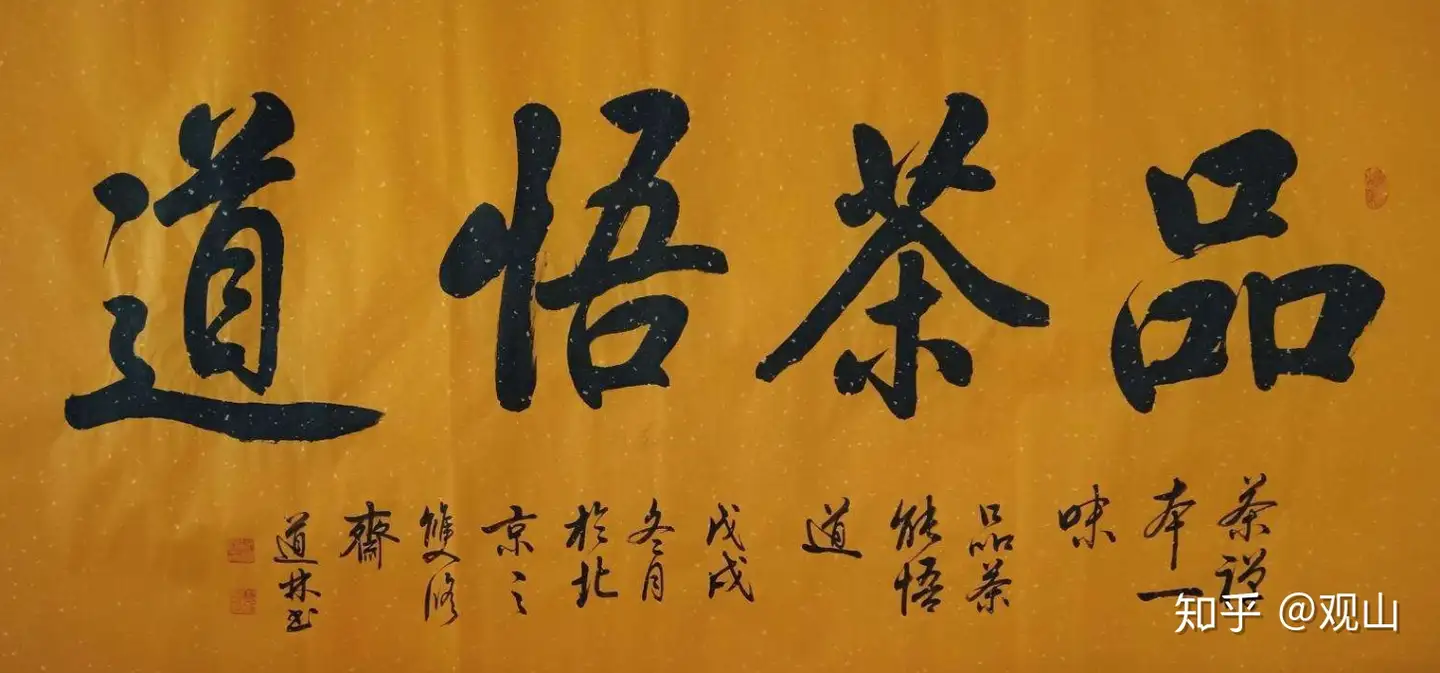 品茶悟道
茶禅
本一
味
品茶
能悟
道
戊戌
冬月
於北
京之
雙修
齋
道林书
知乎 @观山